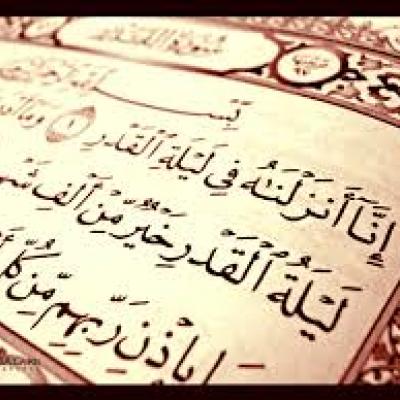 سورة القدر
بِسْمِ ٱللَّهِ ٱلرَّحْمَٰنِ
إِنَّآ أَنزَلْنَٰهُ فِى لَيْلَةِ ٱلْقَدْرِ ١ وَمَآ
لَيْلَةُ ٱلْقَدْرِ خَيْرٌ مِّنْ أَلْفِ شَهْ
بِإِذْنِ رَبِّهِم مِّن كُلِّ